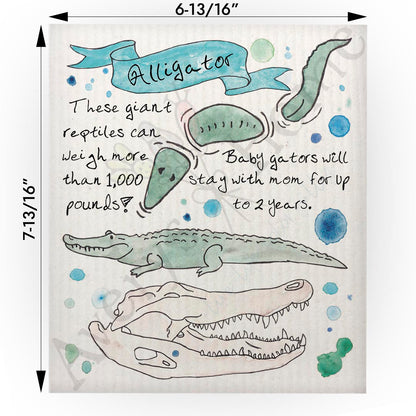 6-13/16”
7-13/16”
Alligator
These giant
reptiles can
weigh more
than 1,000
pounds!
Baby gators will
stay with mom for up
to 2 years.